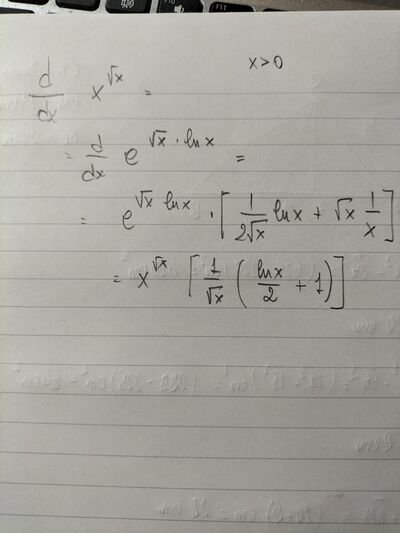 x>0
d/dx x^√x =
= d/dx e^(√x · ln x) =
= e^(√x ln x) · [1/(2√x) ln x + √x 1/x]
= x^√x [1/√x (ln x/2 + 1)]